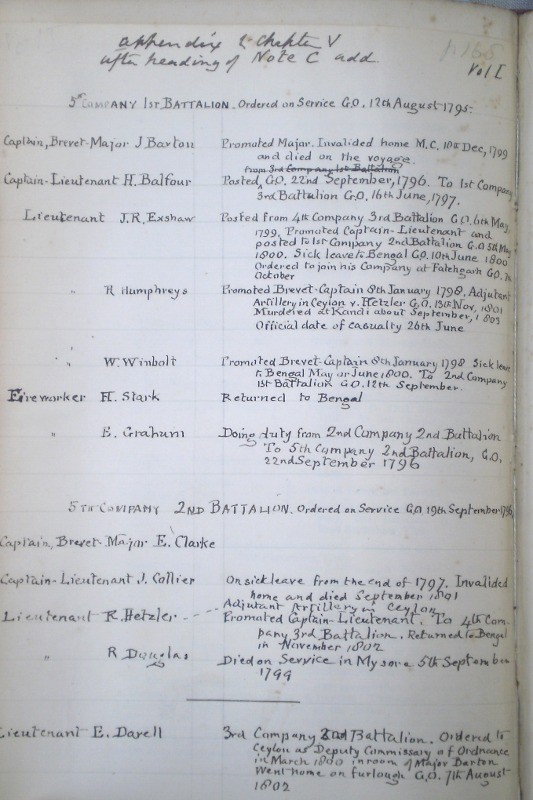 appendix to Chapter V
after heading of Note C add.
Vol I
5th COMPANY 1ST BATTALION. Ordered on Service G.O. 12th August 1795.
Captain, Brevet-Major J. Barton Promoted Major. Invalided home M.C. 10th Dec, 1799
and died on the voyage.
From 3rd Company 1st Battalion
Captain-Lieutenant H. Balfour Posted G.O. 22nd September, 1796. To 1st Company
3rd Battalion G.O. 16th June, 1797.
Lieutenant J.R. Exshaw Posted from 4th Company 3rd Battalion G.O. 6th May,
1799, Promoted Captain-Lieutenant and
posted to 1st Company 2nd Battalion G.O. 5th May
1800. Sick leave to Bengal G.O. 10th June 1800
Ordered to join his Company at Fatehgarh G.O.
October
" R Humphreys Promoted Brevet-Captain 8th January 1798. Adjutant
Artillery in Ceylon v. Hetzler G.O. 13th Nov, 1801
Murdered at Kandi about September, 1803
Official date of casualty 26th June
" W. Winbolt Promoted Brevet-Captain 8th January 1798 Sick leave
to Bengal May or June 1800. To 2nd Company
1st Battalion G.O. 12th September.
Fireworker H. Stark Returned to Bengal
" E. Graham Doing duty from 2nd Company 2nd Battalion
To 5th Company 2nd Battalion, G.O.
22nd September 1796
5TH COMPANY 2ND BATTALION. Ordered on Service G.O. 19th September 1796
Captain, Brevet-Major E. Clarke
Captain-Lieutenant J. Collier On sick leave from the end of 1797. Invalided
home and died September 1801
Adjutant Artillery in Ceylon
Lieutenant R. Hetzler - - - Promoted Captain-Lieutenant. To 4th Com-
pany 3rd Battalion. Returned to Bengal
in November 1802
" R Douglas Died on Service in Mysore 5th September
1799
Lieutenant E. Darell 3rd Company 2nd Battalion. Ordered to
Ceylon as Deputy Commissary of Ordnance
in March 1800 in room of Major Barton
Went home on furlough G.O. 7th August
1802